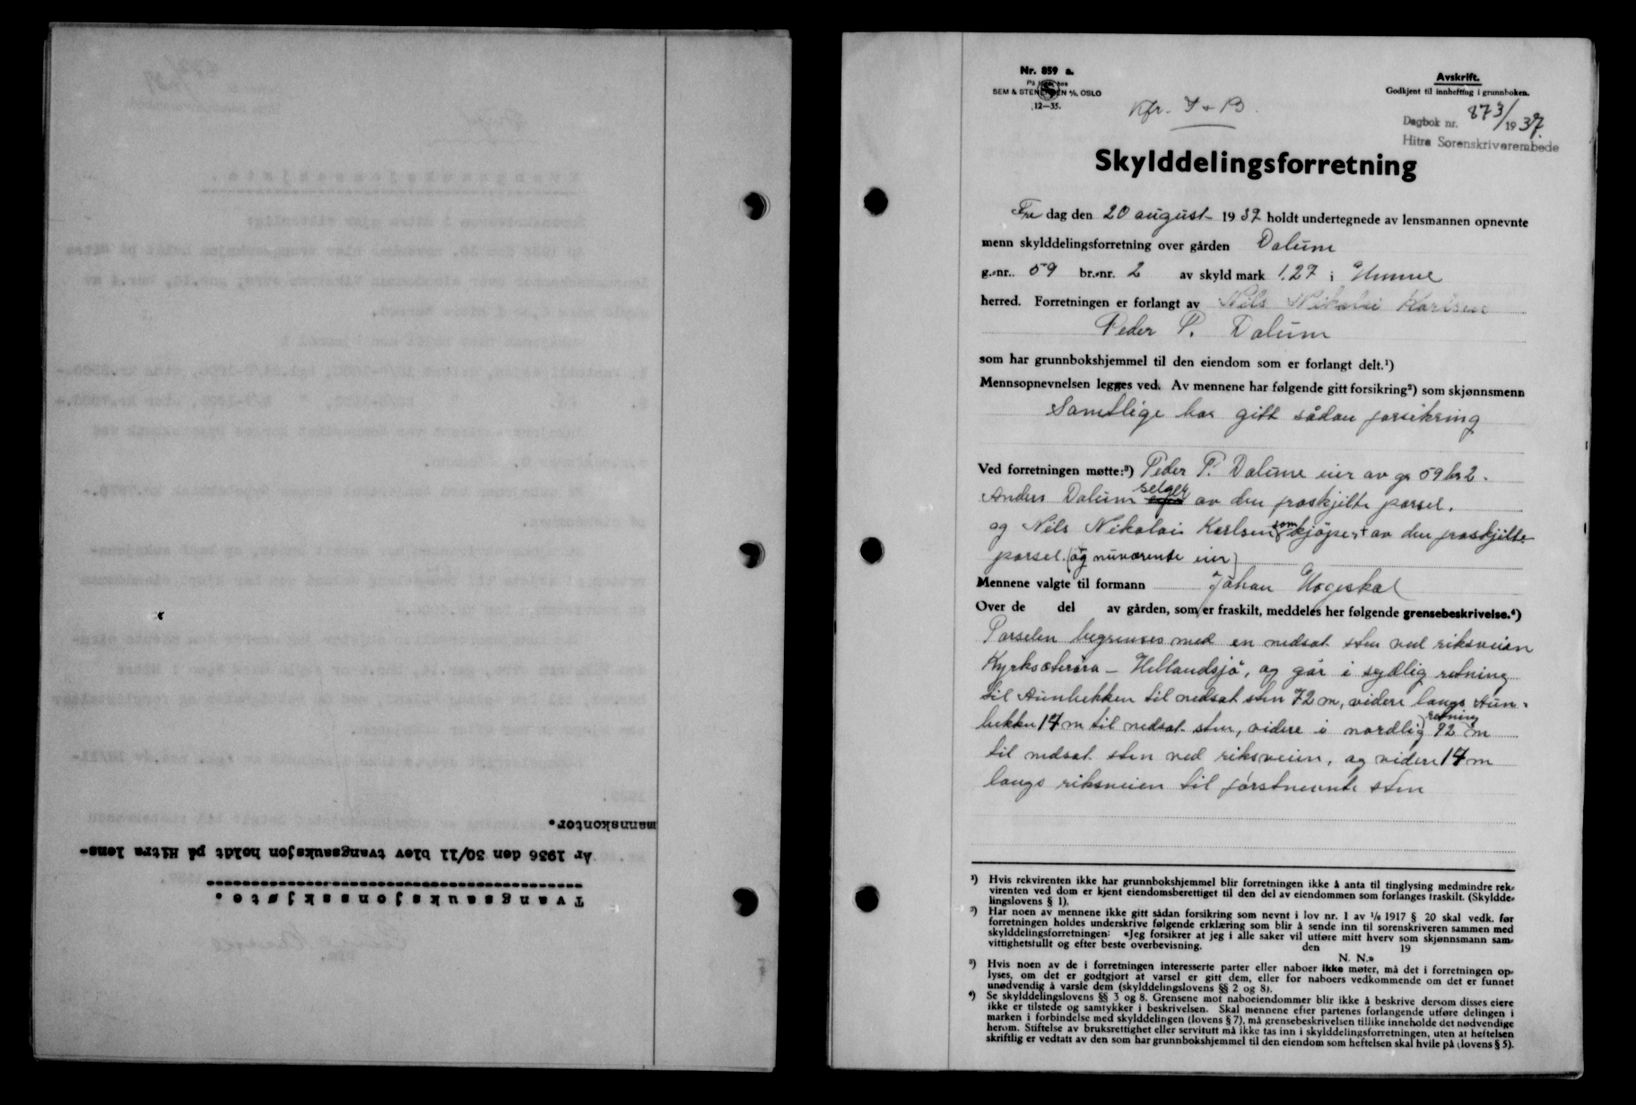 mannskontor.
År 1936 den 30/11 blev tvangsauksjon holdt på Hitra lens-
Tvangsauksjonsskjøte.
Nr. 859 a.
SEM & STENERSEN A/S, OSLO
12—35.
Kfr. F + B.
Avskrift.
Godkjent til innhefting i grunnboken.
Dagbok nr. 873/1937.
Hitra Sorenskriverembede
Skylddelingsforretning
Fre dag den 20 august 1937 holdt undertegnede av lensmannen opnevnte
menn skylddelingsforretning over gården Dalum
g.-nr. 59 br.-nr. 2 av skyld mark 1.27 i
herred. Forretningen er forlangt av Nils Nikolai Karlsen
Peder P. Dalum
som har grunnbokshjemmel til den eiendom som er forlangt delt.¹)
Mennsopnevnelsen legges ved. Av mennene har følgende gitt forsikring²) som skjønnsmenn
Samtlige har gitt sådan forsikring
Ved forretningen møtte:³) Peder P. Dalum eier av gr 59 br 2.
Anders Dalum selger av den fraskjilte parsel.
og Nils Nikolai Karlsen som kjøper av den fraskjilte
parsel. (og nuværende eier)
Mennene valgte til formann Johan
Over de del av gården, som er fraskilt, meddeles her følgende grensebeskrivelse.⁴)
Parselen begrenses med en nedsat sten ved riksveien
Kyrksæterøra – Hellandsjø, og går i sydlig retning
til Aunbekken til nedsat sten 72 m, videre langs Aun-
bekken 14 m til nedsat sten, videre i nordlig retning 92 m
til nedsat sten ved riksveien, og videre 14 m
langs riksveien til førstnevnte sten
¹) Hvis rekvirenten ikke har grunnbokshjemmel blir forretningen ikke å anta til tinglysing medmindre rek-
virenten ved dom er kjent eiendomsberettiget til den del av eiendommen som forlanges fraskilt. (Skyldde-
lingslovens § 1).
²) Har noen av mennene ikke gitt sådan forsikring som nevnt i lov nr. 1 av 1/6 1917 § 20 skal vedk. før
forretningen holdes underskrive følgende erklæring som blir å sende inn til sorenskriveren sammen med
skylddelingsforretningen: «Jeg forsikrer at jeg i alle saker vil utføre mitt hverv som skjønnsmann sam-
vittighetsfullt og efter beste overbevisning. den 19
N. N.»
³) Hvis noen av de i forretningen interesserte parter eller naboer ikke møter, må det i forretningen op-
lyses, om det er godtgjort at varsel er gitt dem, eller for naboers vedkommende om det er funnet
unødvendig å varsle dem (skylddelingslovens §§ 2 og 8).
⁴) Se skylddelingslovens §§ 3 og 8. Grensene mot naboeiendommer blir ikke å beskrive dersom disses eiere
ikke er tilstede og samtykker i beskrivelsen. Skal mennene efter partenes forlangende utføre delingen i
marken i forbindelse med skylddelingen (lovens § 7), må grensebeskrivelsen tillike inneholde det nødvendige
herom. Stiftelse av bruksrettighet eller servitutt må ikke tas inn i skylddelingsforretningen, uten at heftelsen
skriftlig er vedtatt av den som har grunnbokshjemmel til den eiendom som heftelsen skal hvile på (lovens § 5).